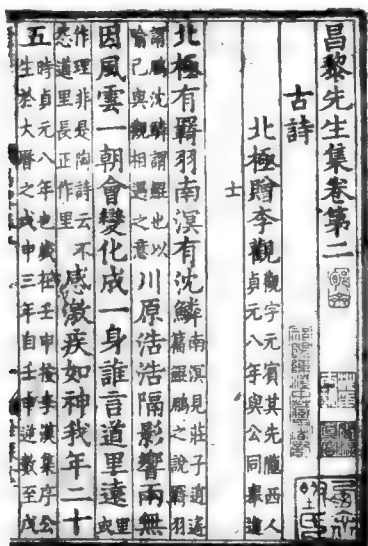 昌黎先生集卷第二
古詩
北極贈李觀觀字元賓其先隴西人貞元八年與公同舉進
士
北極有羇羽南溟有沈鱗南溟見莊子逍遙篇鯤鵬之說羇羽
謂鵬沈鱗謂鯤也以喻己與觀相遇之意川原浩浩隔影響兩無
因風雲一朝會變化成一身誰言道里遠里或
作理非是陶詩云不恐道里長正作里感激疾如神我年二十
五時貞元八年也歲在壬申按李漢集序公生於大曆之戊申三年自壬申逆數至戊